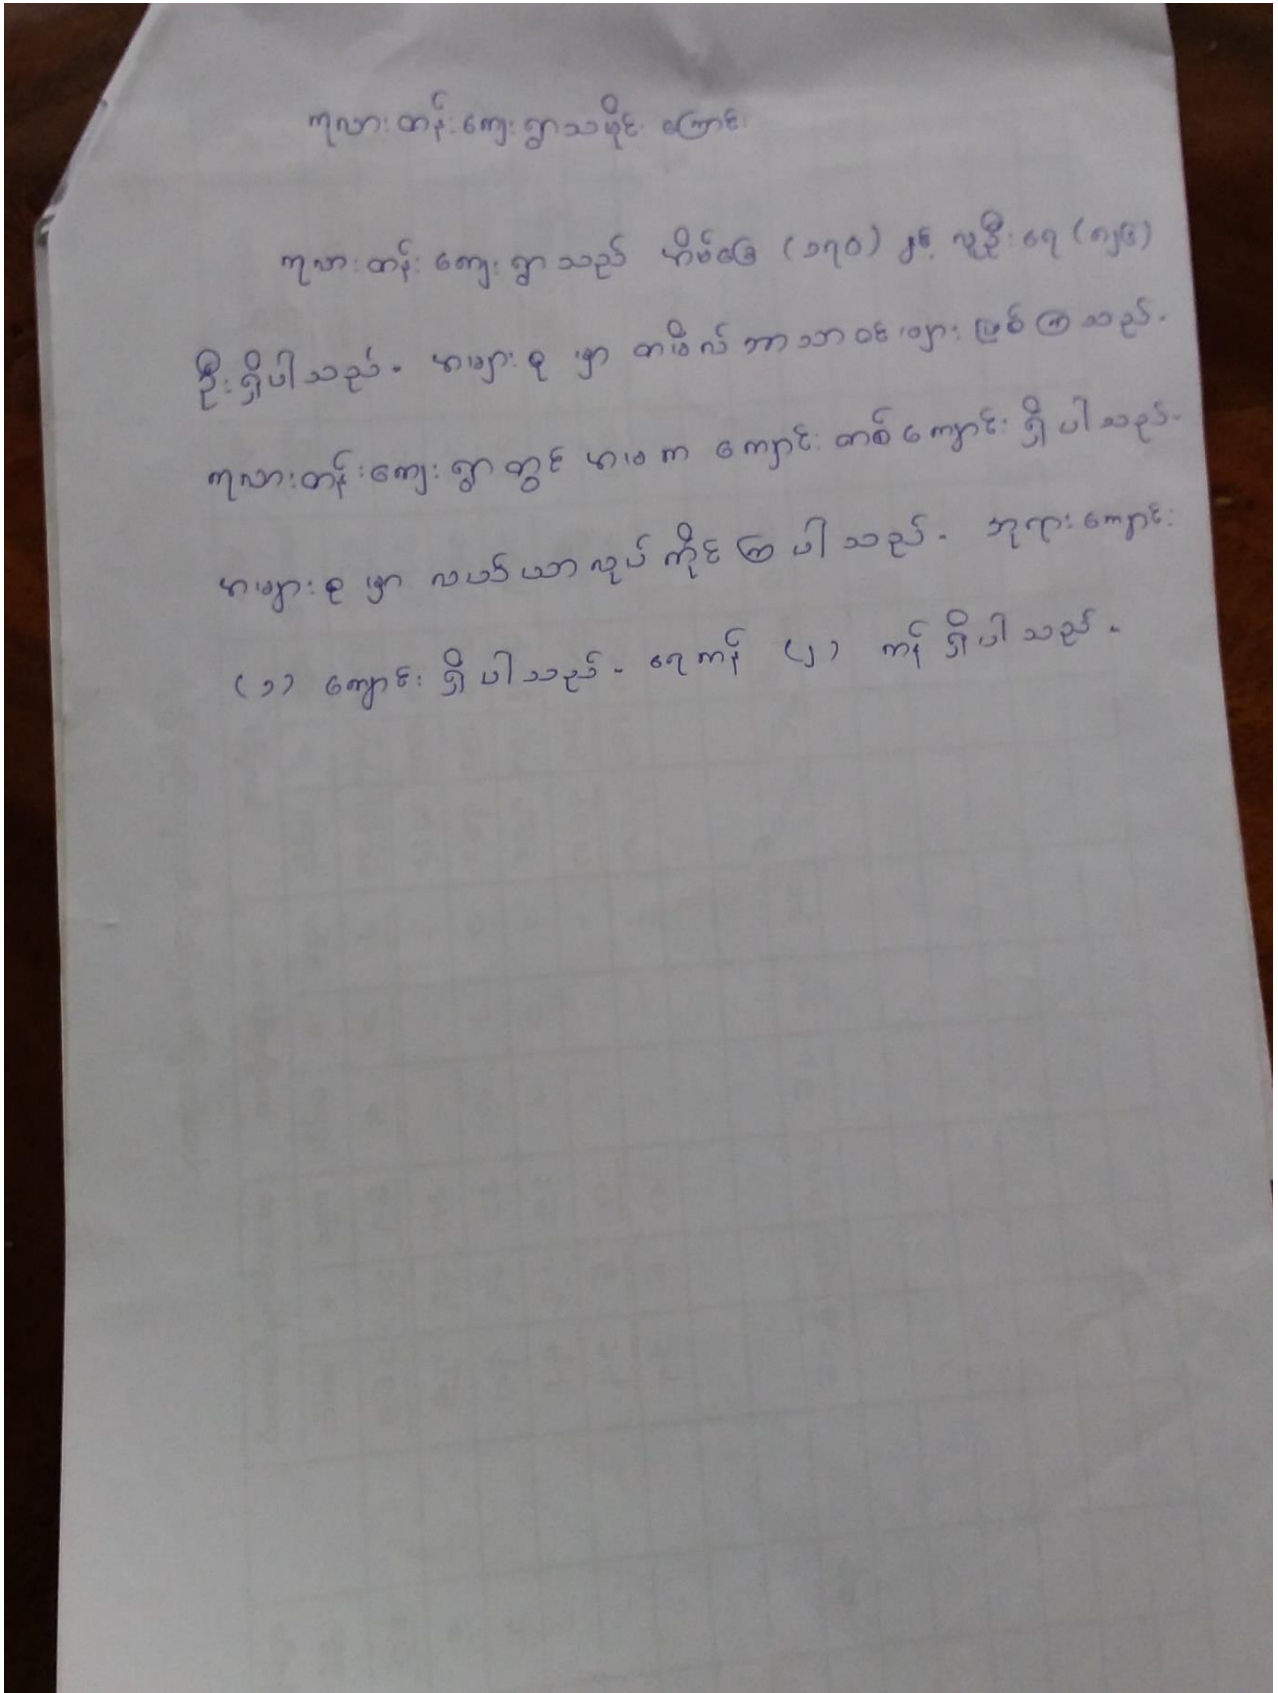 ကုလားတန်းကျေးရွာသမိုင်းကြောင်း
ကုလားတန်းကျေးရွာသည် အိမ်ခြေ (၁၇၀) နှင့် လူဦးရေ (၈၂၆)
ဦးရှိပါသည်။ အများစုမှာ တမီလ်ဘာသာဝင်များ ဖြစ်ကြသည်။
ကုလားတန်းကျေးရွာတွင် အ.မ.က ကျောင်းတစ်ကျောင်းရှိပါသည်။
အများစုမှာ လယ်ယာလုပ်ကိုင်ကြပါသည်။ ဘုရားကျောင်း
(၁) ကျောင်းရှိပါသည်။ ရေကန် (၂) ကန်ရှိပါသည်။